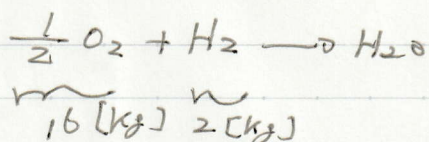 1/2 O₂ + H₂ → H₂O
16 [kg] 2 [kg]